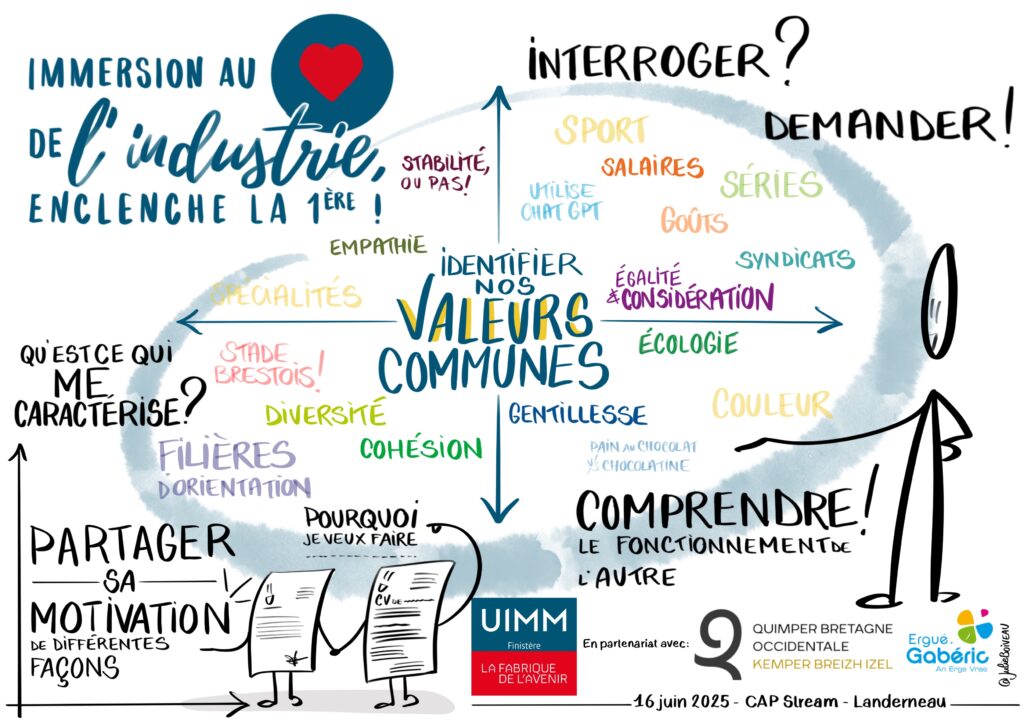 IMMERSION AU
DE l'industrie,
ENCLENCHE LA 1ÈRE !
INTERROGER ?
DEMANDER !
STABILITÉ,
OU PAS !
SPORT
SALAIRES
UTILISE
CHAT GPT
SÉRIES
GOÛTS
EMPATHIE
SYNDICATS
SPÉCIALITÉS
IDENTIFIER
NOS
VALEURS
COMMUNES
ÉGALITÉ
& CONSIDÉRATION
ÉCOLOGIE
QU'EST CE QUI
ME
CARACTÉRISE ?
STADE
BRESTOIS !
DIVERSITÉ
GENTILLESSE
COULEUR
FILIÈRES
D'ORIENTATION
COHÉSION
PAIN AU CHOCOLAT
VS CHOCOLATINE
COMPRENDRE !
LE FONCTIONNEMENT DE
L'AUTRE
PARTAGER
SA
MOTIVATION
DE DIFFÉRENTES
FAÇONS
POURQUOI
JE VEUX FAIRE
CV DE
UIMM
Finistère
LA FABRIQUE
DE L'AVENIR
En partenariat avec:
QUIMPER BRETAGNE
OCCIDENTALE
KEMPER BREIZH IZEL
Ergué.
Gabéric
An Erge Vras
@JulieBoiveau
16 juin 2025 - CAP Stream - Landerneau